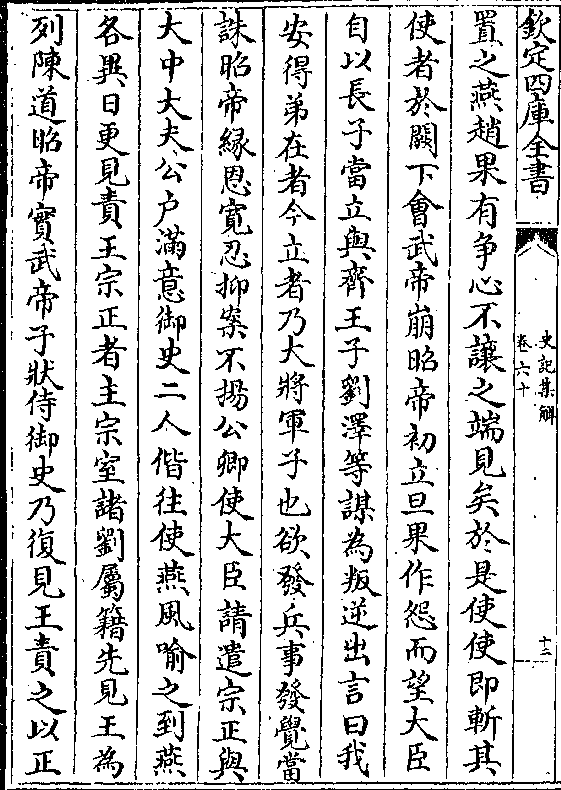 欽定四庫全書
史記集解
卷六十
十二
置之燕趙果有争心不讓之端見矣於是使使即斬其
使者於闕下㑹武帝崩昭帝初立旦果作怨而望大臣
自以長子當立與齊王子劉澤等謀為叛逆出言曰我
安得弟在者今立者乃大將軍子也欲發兵事發覺當
誅昭帝縁恩寛忍抑案不揚公卿使大臣請遣宗正與
大中大夫公户滿意御史二人偕往使燕風喻之到燕
各異日更見責王宗正者主宗室諸劉屬籍先見王為
列陳道昭帝實武帝子狀侍御史乃復見王責之以正